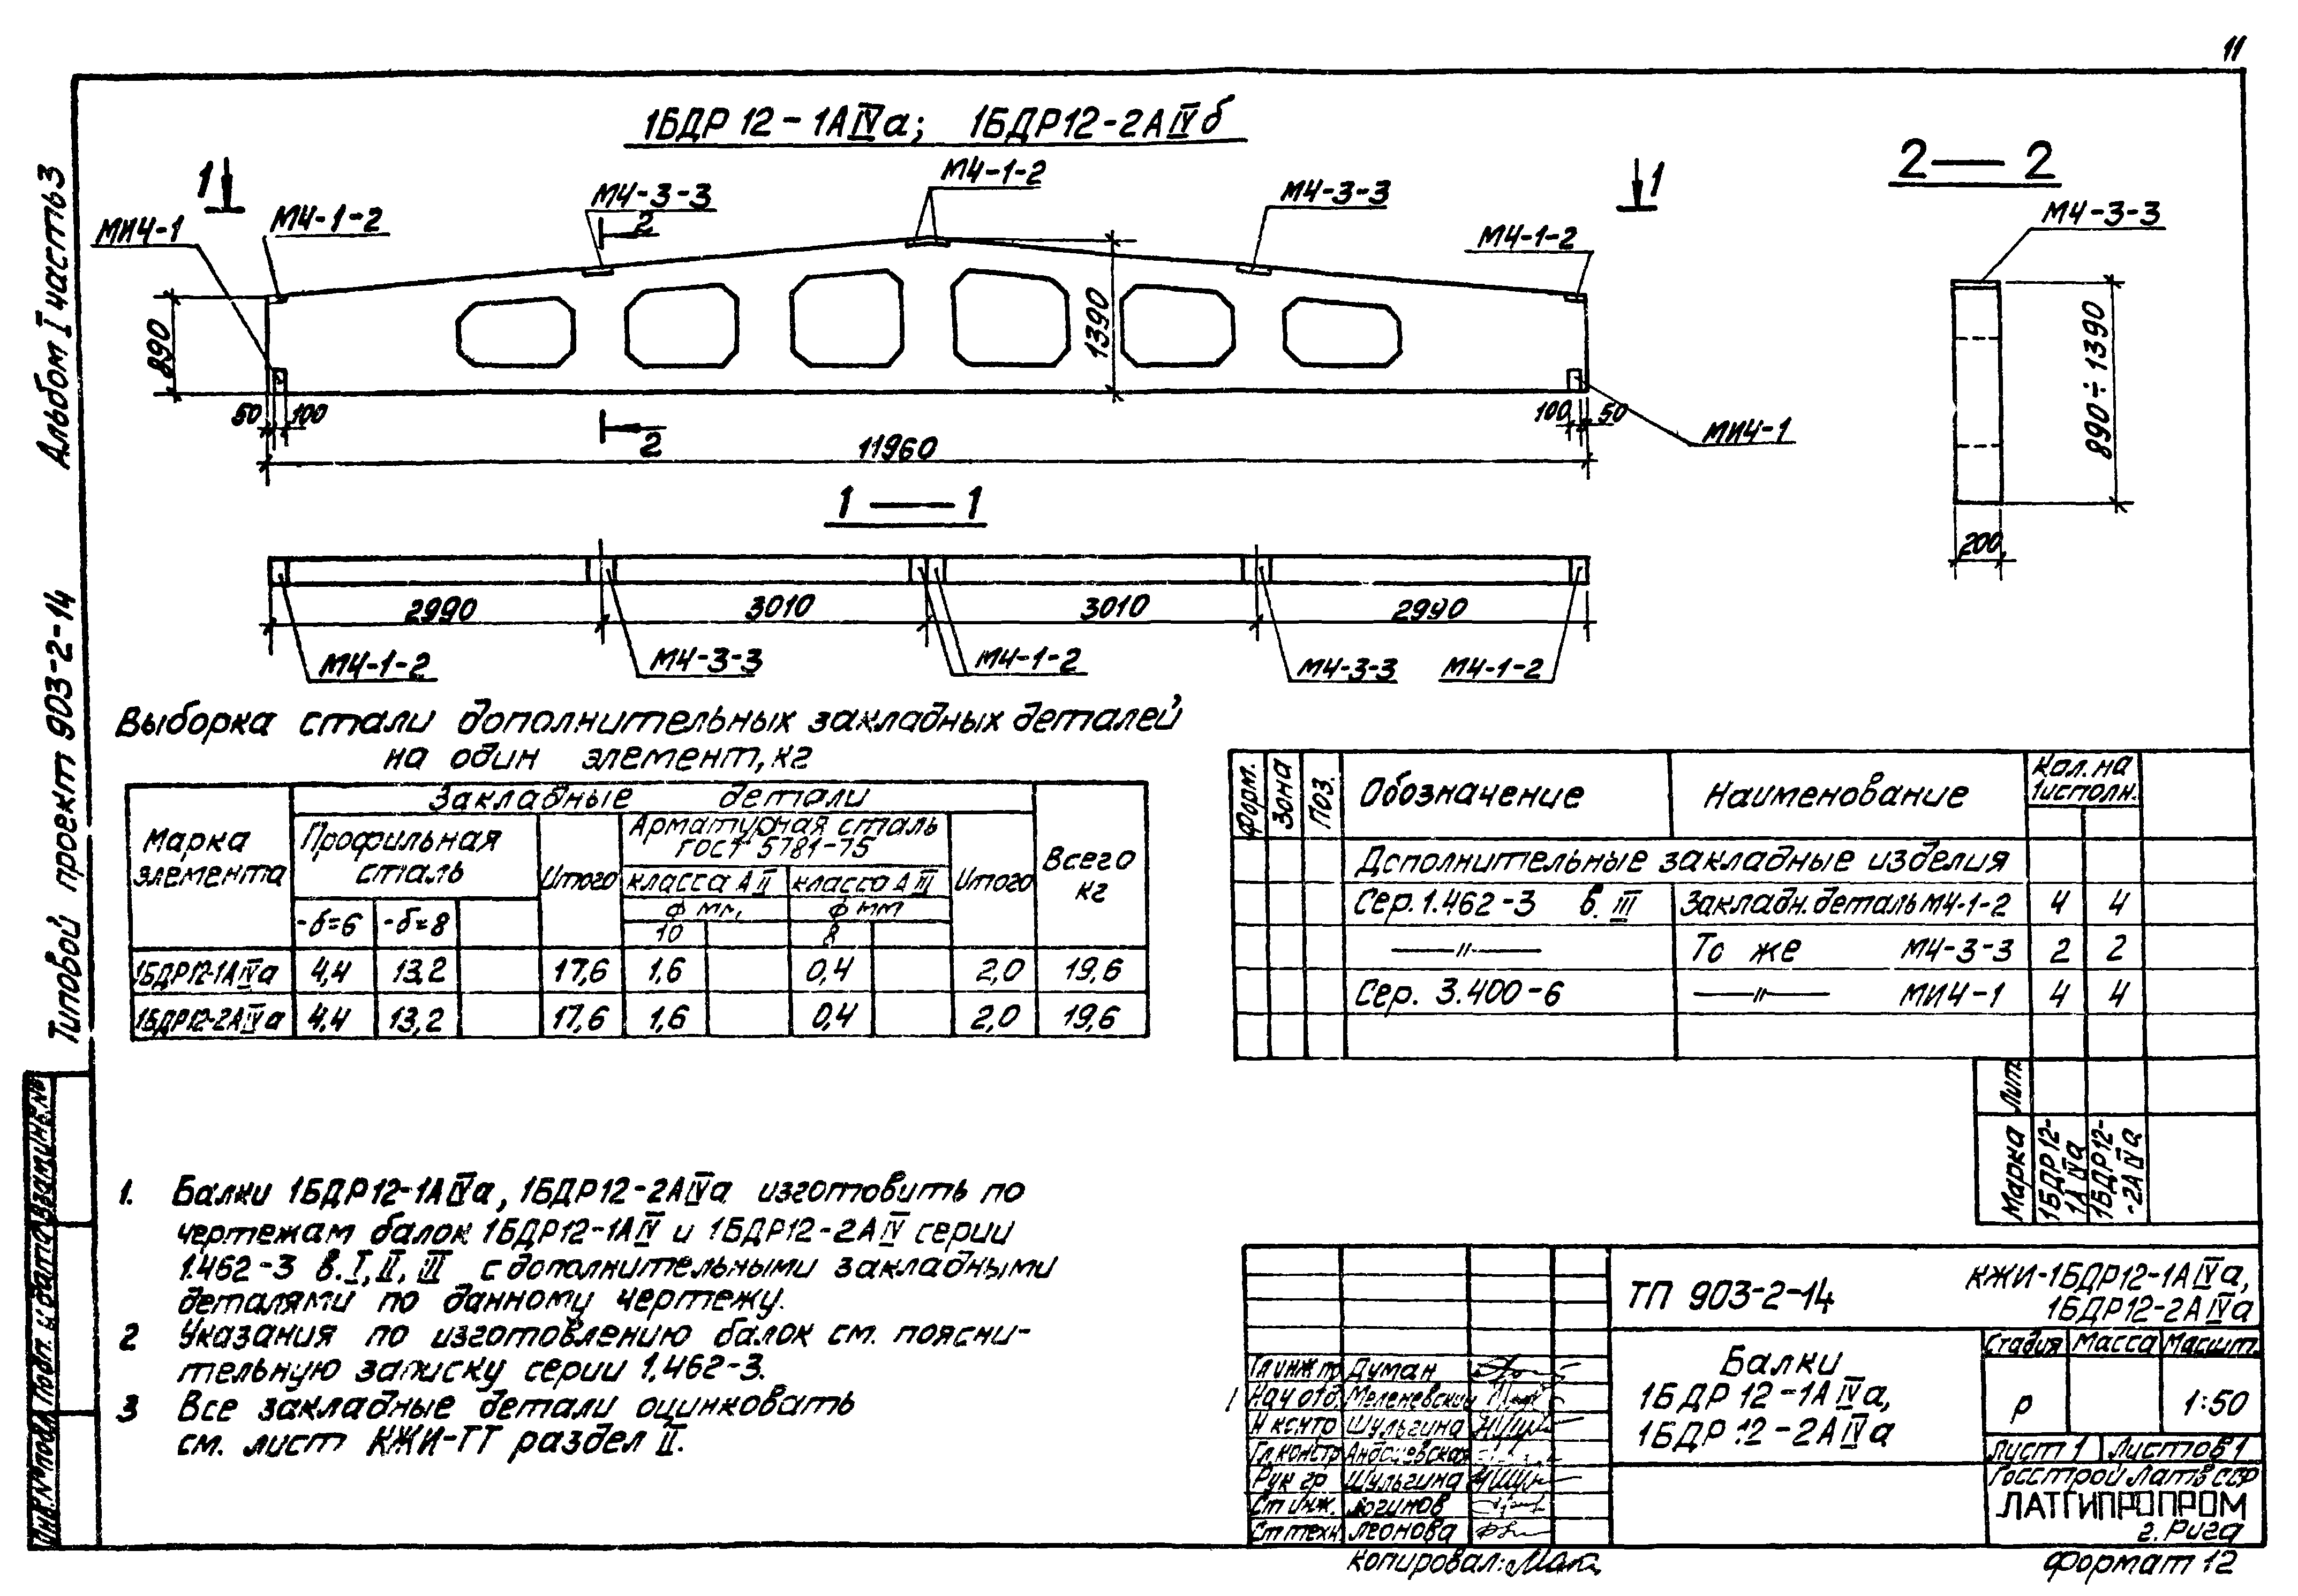 11
Альбом I часть 3
Типовой проект 903-2-14
1БДР 12-1АIVа; 1БДР12-2АIVб
1
МИ4-1
М4-1-2
М4-3-3
2
М4-1-2
М4-3-3
М4-1-2
1
890
1390
50
100
100
50
МИ4-1
2
11960
2—2
М4-3-3
890÷1390
200
1—1
2990
3010
3010
2990
М4-1-2
М4-3-3
М4-1-2
М4-3-3
М4-1-2
Выборка стали дополнительных закладных деталей
на один элемент, кг
Марка элемента
Закладные детали
Всего кг
Профильная сталь
Итого
Арматурная сталь ГОСТ 5781-75
Итого
класса АII
класса АIII
-δ=6
-δ=8
ф мм,
ф мм
10
8
1БДР12-1АIVа 4,4 13,2 17,6 1,6 0,4 2,0 19,6
1БДР12-2АIVа 4,4 13,2 17,6 1,6 0,4 2,0 19,6
Форм.
Зона
Поз.
Обозначение
Наименование
Кол. на 1исполн.
Дополнительные закладные изделия
Сер. 1.462-3 в. III Закладн. деталь М4-1-2 4 4
—〃— То же М4-3-3 2 2
Сер. 3.400-6 —〃— МИ4-1 4 4
Лит.
Марка
1БДР12-1АIVа
1БДР12--2АIVа
1. Балки 1БДР12-1АIVа, 1БДР12-2АIVа изготовить по
чертежам балок 1БДР12-1АIV и 1БДР12-2АIV серии
1.462-3 в. I, II, III с дополнительными закладными
деталями по данному чертежу.
2 Указания по изготовлению балок см. поясни-
тельную записку серии 1.462-3.
3 Все закладные детали оцинковать
см. лист КЖИ-ТТ раздел II.
Взам.инв.№
Подп. и дата
Инв.№подл.
ТП 903-2-14
КЖИ-1БДР12-1АIVа,
1БДР12-2АIVа
Балки
1БДР 12-1АIVа,
1БДР 12-2АIVа
Стадия Масса Масшт.
Р 1:50
Лист 1 Листов 1
Госстрой Латв ССР
ЛАТГИПРОПРОМ
г. Рига
Гл инж пр Думан
Нач отд. Меленевский
Н контр Шульгина
Гл. констр
Рук гр Шульгина
Ст инж. Логинов
Ст техн Леонова
Копировал:
Формат 12